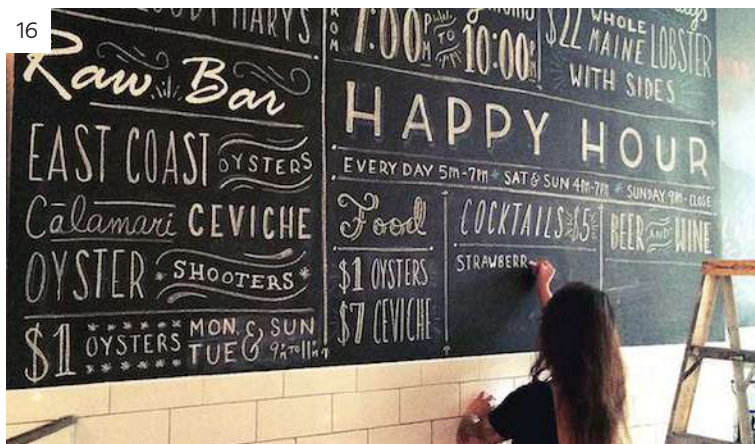 16
BLOODY MARYS
Raw Bar
EAST COAST OYSTERS
Calamari CEVICHE
OYSTER SHOOTERS
$1 OYSTERS MON, TUE & SUN 9PM TO 11PM
FROM 7:00PM TO 10:00PM
$22 WHOLE MAINE LOBSTER
WITH SIDES
HAPPY HOUR
EVERY DAY 5PM-7PM * SAT & SUN 4PM-7PM * SUNDAY 9PM-CLOSE
Food
$1 OYSTERS
$7 CEVICHE
COCKTAILS $5
STRAWBERR
BEER AND WINE